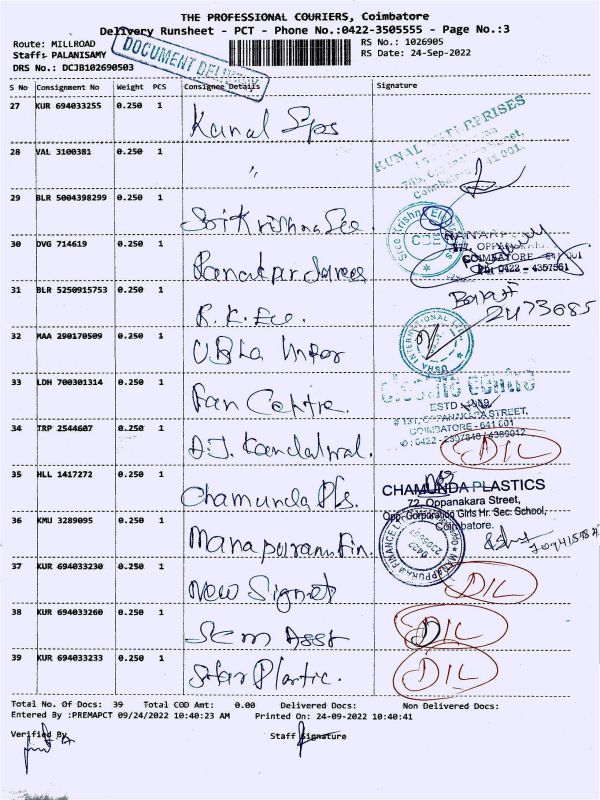 THE PROFESSIONAL COURIERS, Coimbatore
Delivery Runsheet - PCT - Phone No.:0422-3505555 - Page No.:3
Route: MILLROAD
RS No.: 1026905
Staff: PALANISAMY
RS Date: 24-Sep-2022
DRS No.: DCJB102690503
DOCUMENT DELIVERY
S No Consignment No Weight PCS Consignee Details Signature
27 KUR 694033255 0.250 1 Kunal Eps
KUNAL ENTERPRISES
28 VAL 3100381 0.250 1 〃
29 BLR 5004398299 0.250 1 Sri Krishna Ele.
30 DVG 714619 0.250 1
OPPANAKARA
COIMBATORE - 641 001
PH: 0422 - 4357561
31 BLR 5250915753 0.250 1 R.K. Ele.
32 MAA 290170509 0.250 1 Usha Inter
USHA INTERNATIONAL LTD.
33 LDH 700301314 0.250 1 Fan Centre.
Classic Centre
ESTD - 1989
# 131, OPPANAKARA STREET,
COIMBATORE - 641 001
34 TRP 2544607 0.250 1 D.J. Kandalwal. DIL
35 HLL 1417272 0.250 1 Chamunda Pls.
CHAMUNDA PLASTICS
72, Oppanakara Street,
Opp. Corporation Girls Hr. Sec. School,
Coimbatore.
36 KMU 3289095 0.250 1 Manapuram Fin.
37 KUR 694033230 0.250 1 New Signet DIL
38 KUR 694033260 0.250 1 Sem Asst DIL
39 KUR 694033233 0.250 1 Star Plastic. DIL
Total No. Of Docs: 39 Total COD Amt: 0.00 Delivered Docs: Non Delivered Docs:
Entered By :PREMAPCT 09/24/2022 10:40:23 AM Printed On: 24-09-2022 10:40:41
Verified By Staff Signature